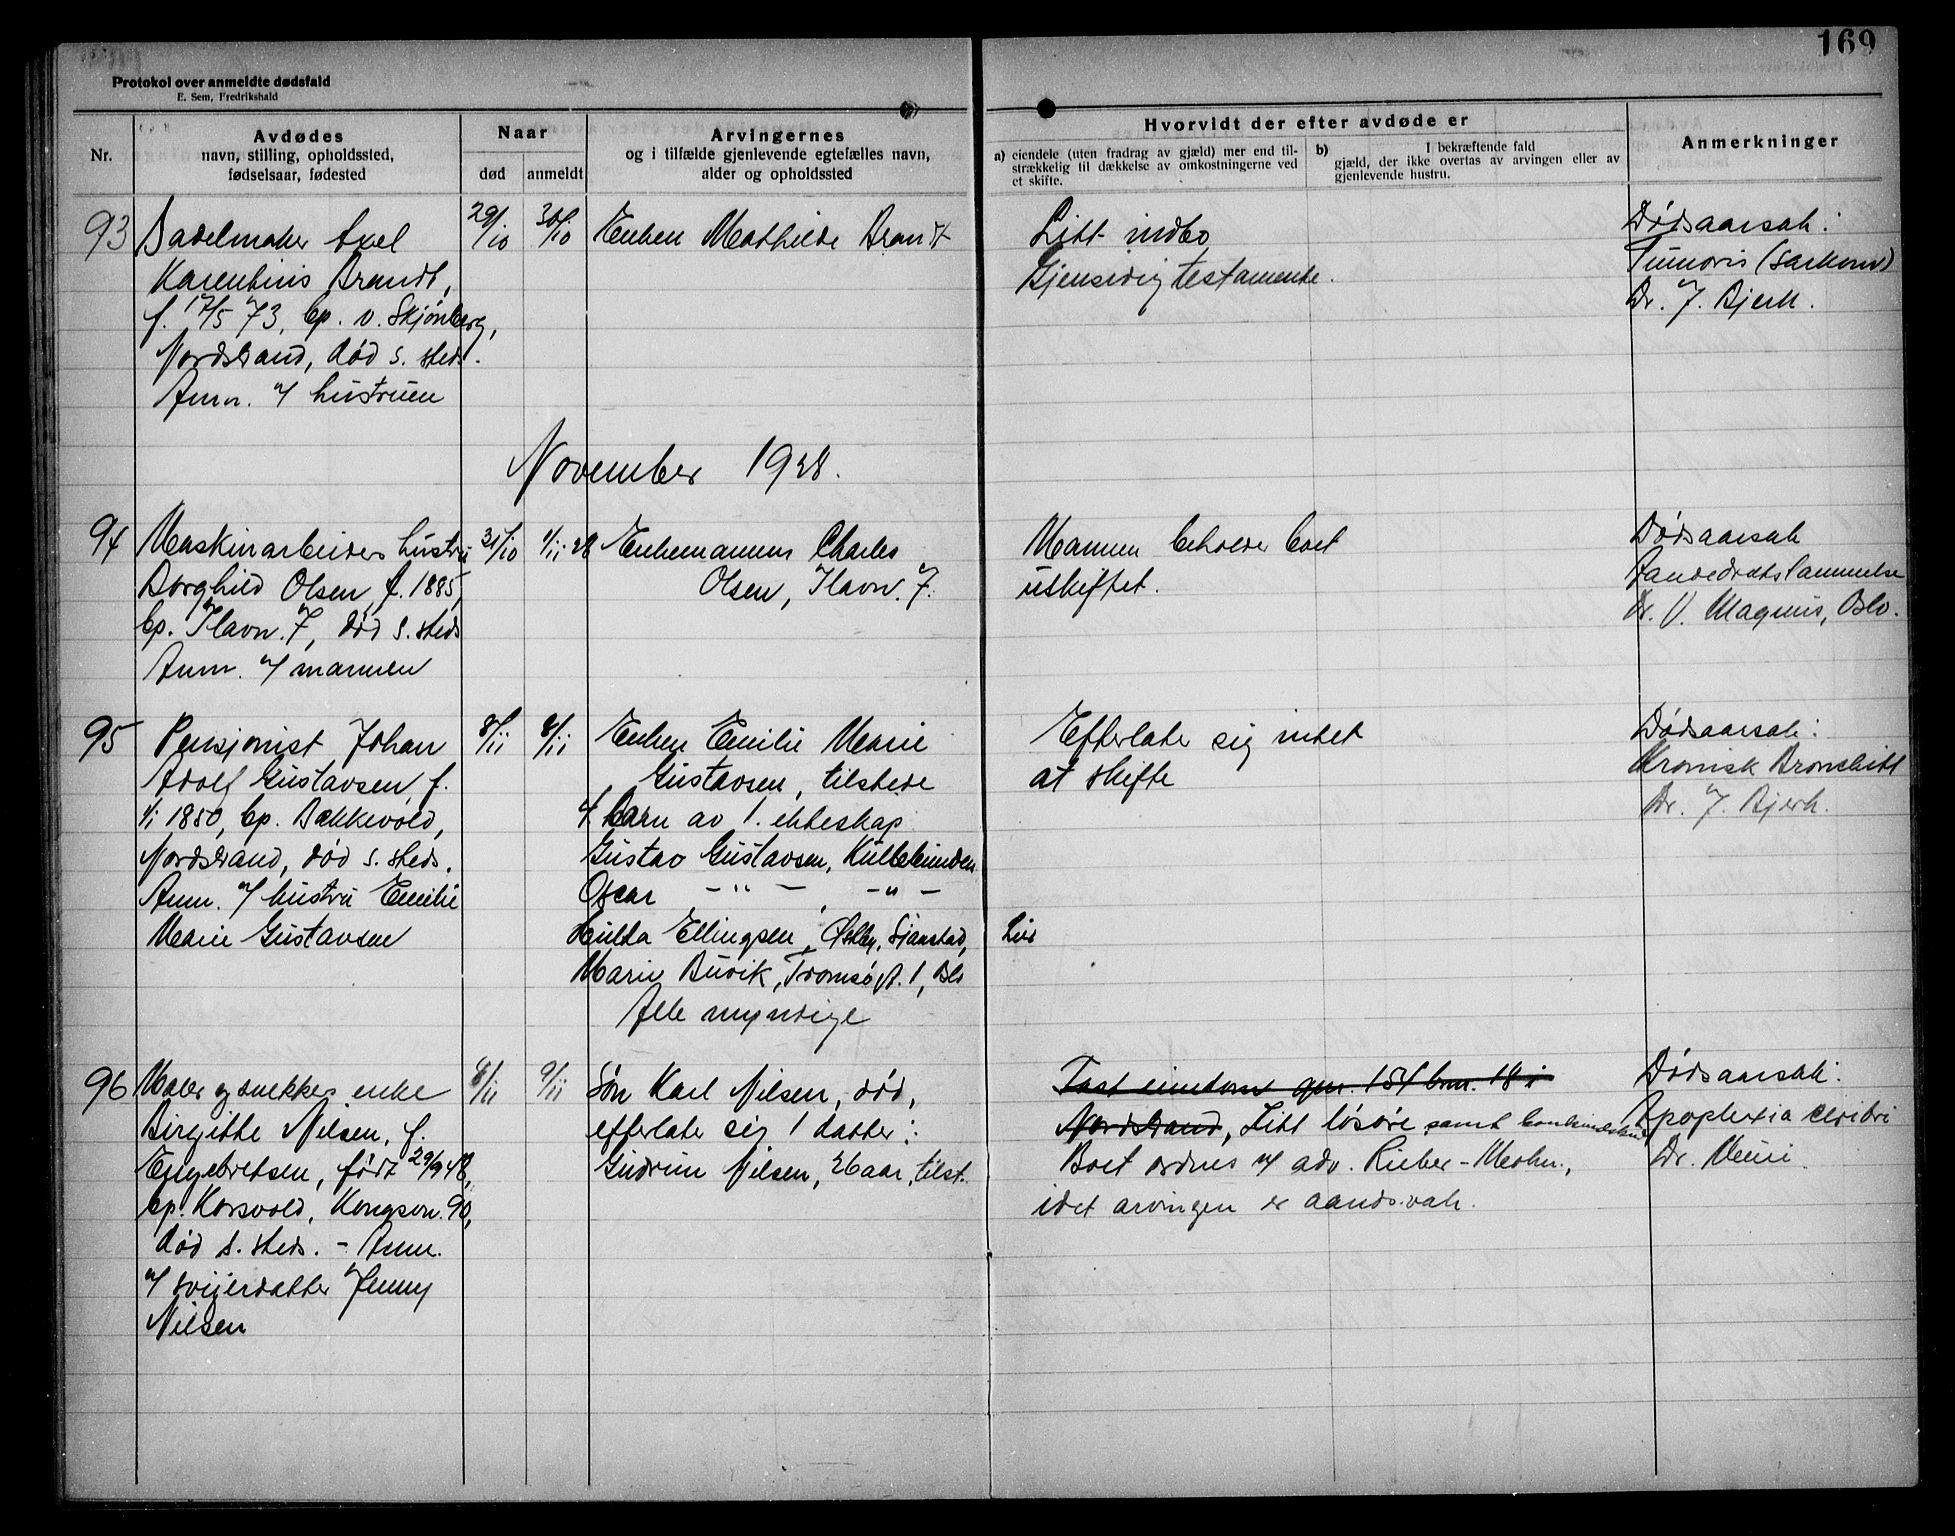 169
Protokol over anmeldte dødsfald
E. Sem, Fredrikshald
Nr.
Avdødes
navn, stilling, opholdssted,
fødselsaar, fødested
Naar
død
anmeldt
Arvingernes
og i tilfælde gjenlevende egtefælles navn,
alder og opholdssted
Hvorvidt der efter avdøde er
a) eiendele (uten fradrag av gjæld) mer end til-
strækkelig til dækkelse av omkostningerne ved
et skifte.
b) I bekræftende fald
gjæld, der ikke overtas av arvingen eller av
gjenlevende hustru.
Anmerkninger
93
Sadelmaker Axel
Brandt,
f. 17/5 73, bp. v. Skjønberg,
Nordstrand, død s. steds.
Anm. af hustruen
29/10
30/10
Enken Mathilde Brandt
Litt indbo
Gjensidig testamente.
Dødsaarsak:
Tumoris (Sarkom)
Dr. J. Bjerk.
November 1928.
94
Maskinarbeiders hustru
Borghild Olsen, f. 1885,
bp. Havn. 7, død s. steds
Anm. af mannen
31/10
1/11 28
Enkemannen Charles
Olsen, Havn. 7.
Mannen beholder boet
uskiftet.
Dødsaarsak
Aandedrætslammelse
Dr. V. Magnus, Oslo.
95
Pensjonist Johan
Adolf Gustavsen, f.
1/1 1850, bp. Bækkevold,
Nordstrand, død s. steds.
Anm. af hustru Emilie
Marie Gustavsen
8/11
8/11
Enken Emilie Marie
Gustavsen, tilstede
4 barn av 1. ekteskap
Gustav Gustavsen, Kullebunden
Oscar — " — — " —
Hulda Ellingsen, Østby, Sjåastad, Lier
Marie Buvik, Tromsøgt. 1, Oslo
Alle myndige
Efterlater sig intet
at skifte
Dødsaarsak:
Kronisk Bronchitt
Dr. J. Bjerk.
96
Maler og snekkes enke
Birgitte Nilsen, f.
Engebretsen, født 29/9 48,
bp. Korsvold, Kongsvn. 90,
død s. steds. - Anm.
af svigerdatter Jenny
Nilsen
8/11
9/11
Søn Karl Nilsen, død,
efterlater sig 1 datter:
Gudrun Nilsen, 26 aar, tilst.
Fast eiendom gnr. 154 bnr. 18 i
Nordstrand, Litt løsøre samt
Boet ordnes af adv. Rieber-Mohn,
idet arvingen er aandsvak.
Dødsaarsak:
Apoplexia cerebri
Dr.